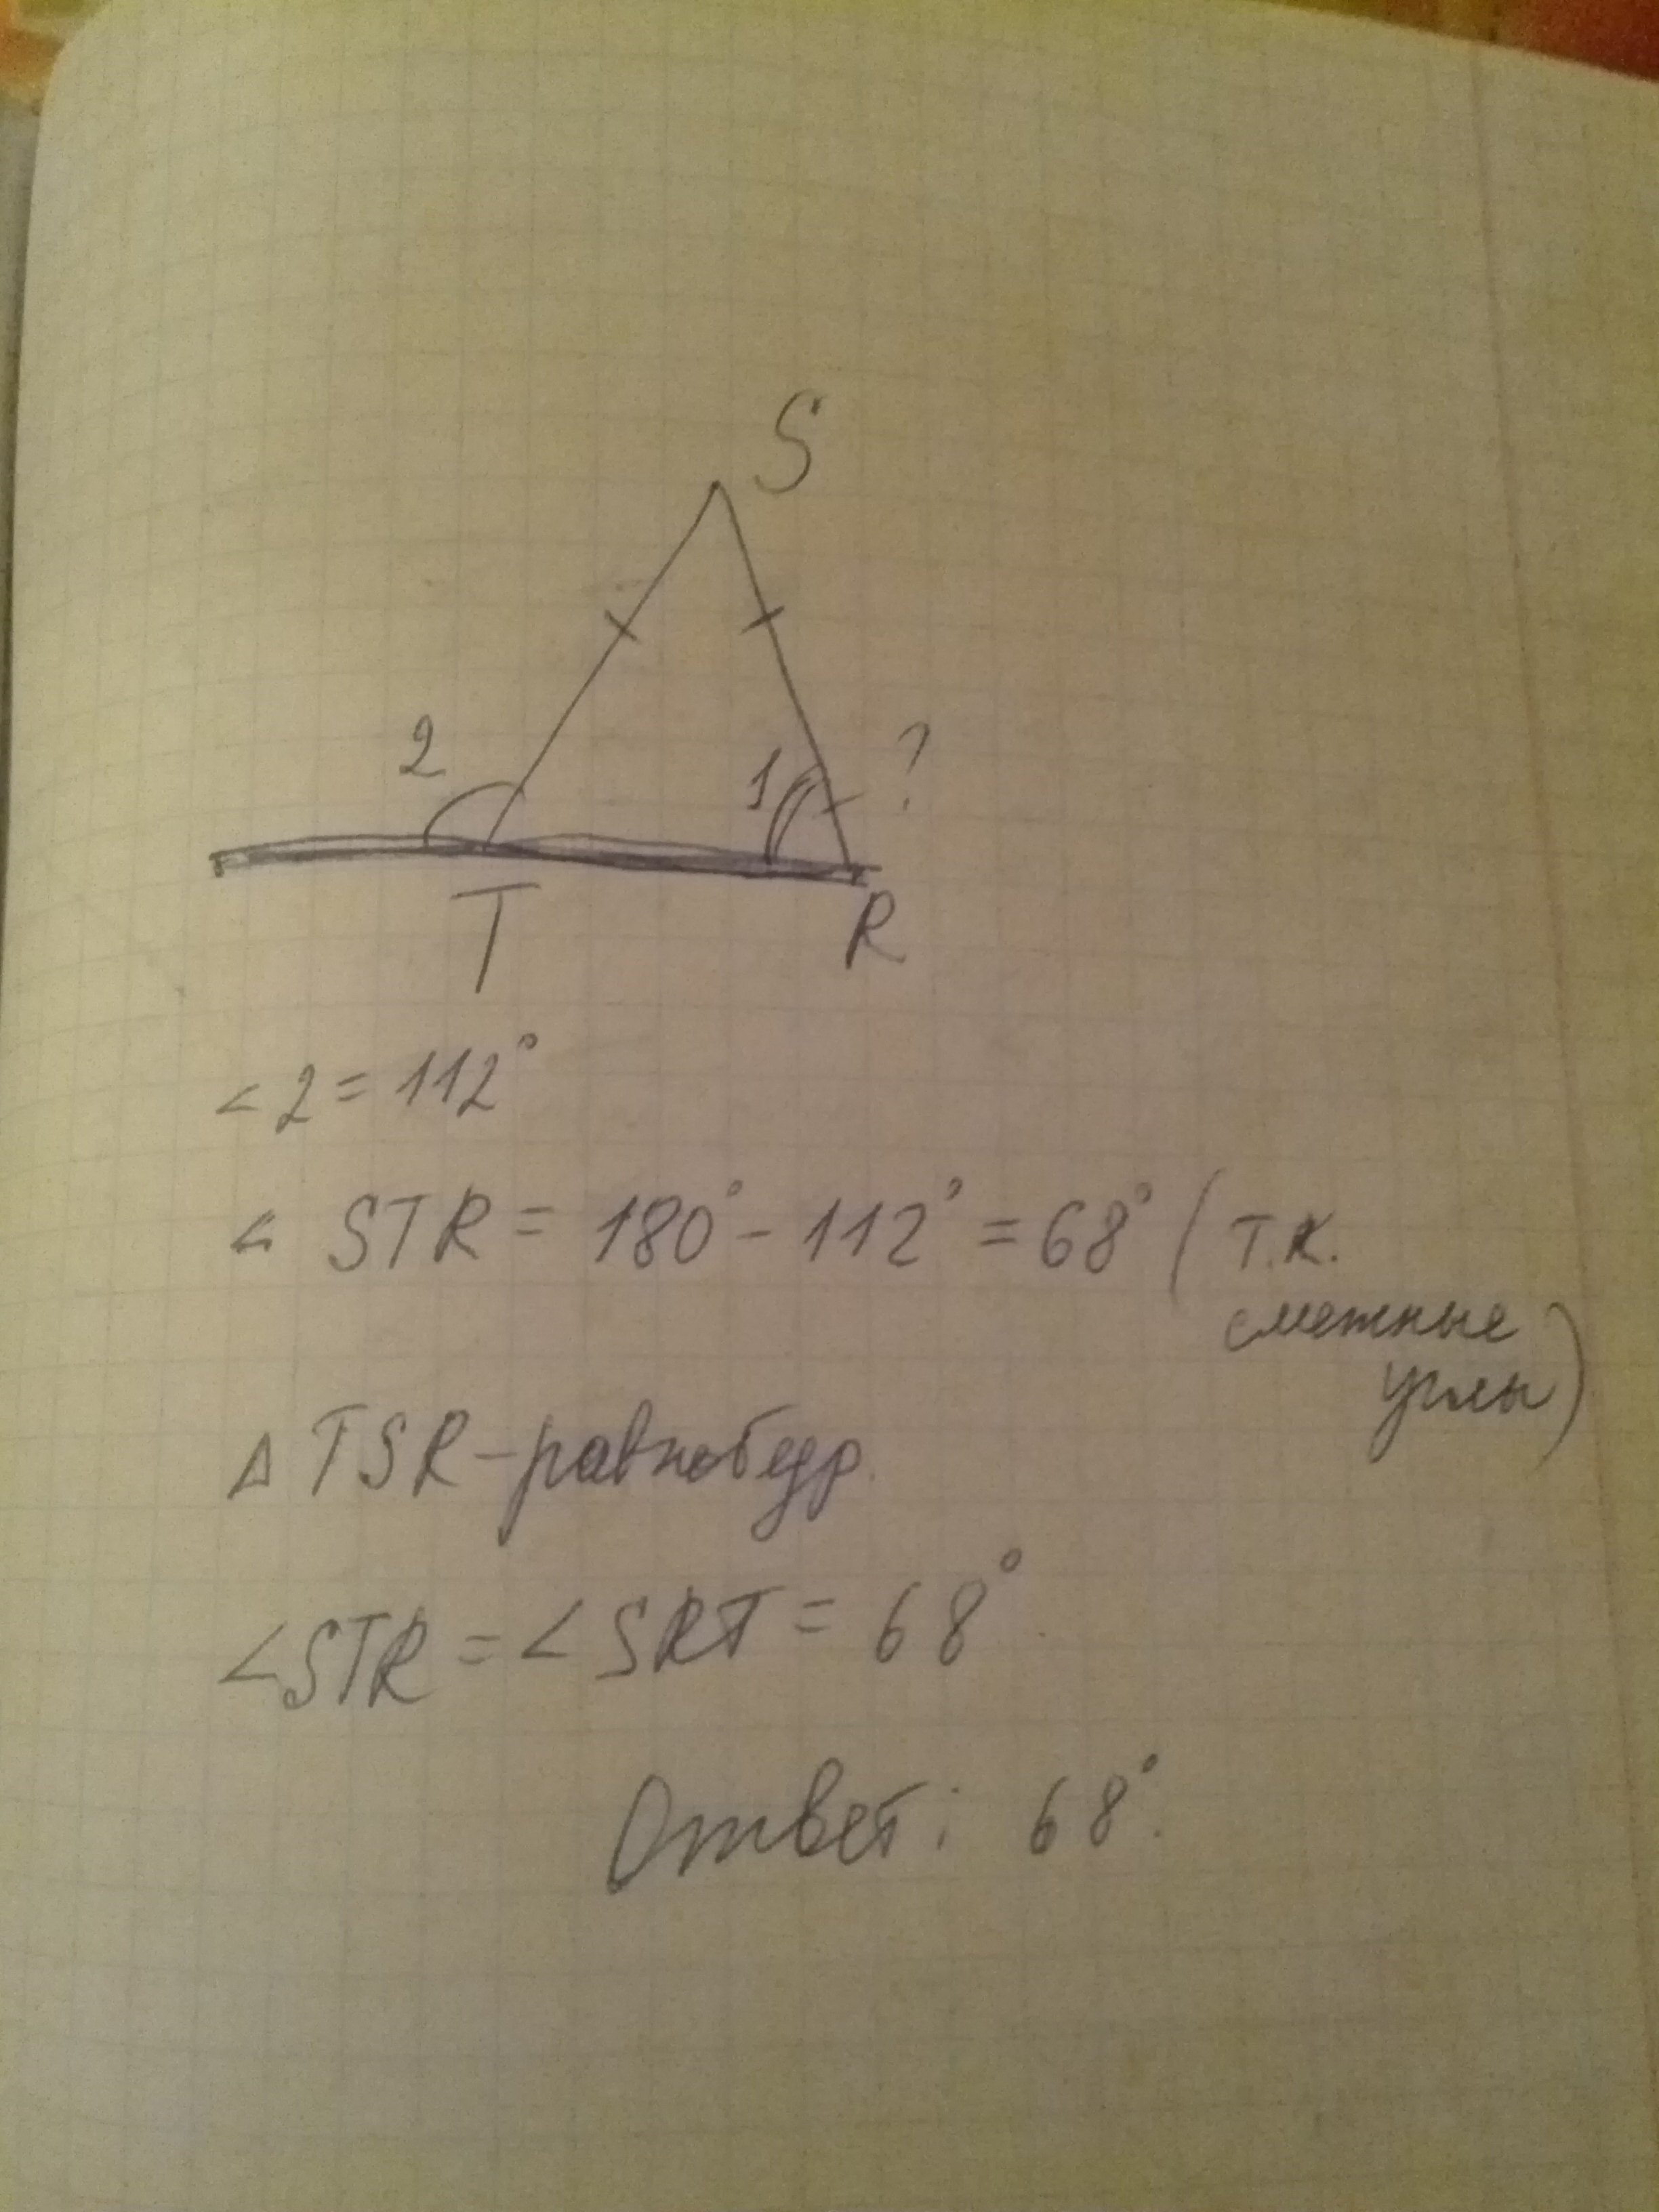 S
2
1
?
T
R
∠2 = 112°
∠ STR = 180° - 112° = 68° (т.к.
смежные
углы)
Δ TSR - равнобедр.
∠STR = ∠SRT = 68°
Ответ: 68°.